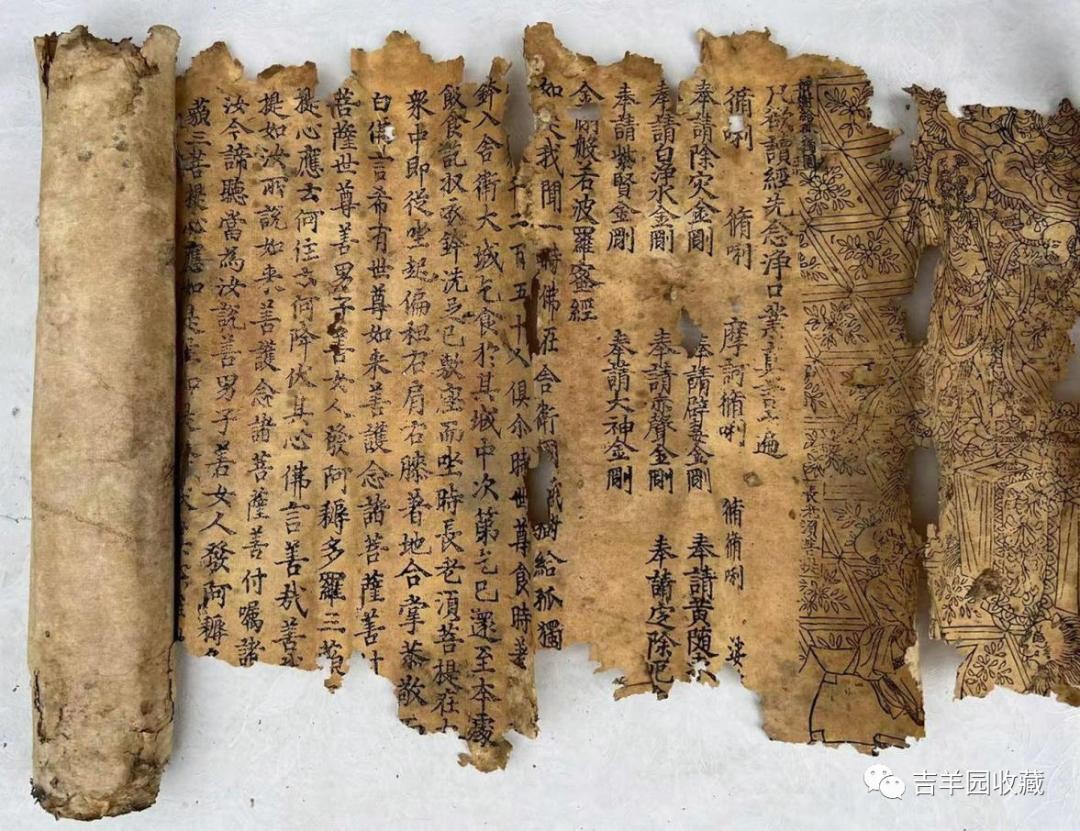 祇樹給孤獨園
長老須菩提
凡欲讀經先念淨口業真言一遍
脩唎 脩唎 摩訶脩唎 脩脩唎 娑
奉請除灾金剛 奉請辟毒金剛 奉請黃随
奉請白淨水金剛 奉請赤聲金剛 奉請㝎除厄
奉請紫賢金剛 奉請大神金剛
金剛般若波羅蜜經
如是我聞一時佛在舍衛國祇樹給孤獨
千二百五十人俱尒時世尊食時著
鉢入舍衛大城乞食於其城中次第乞已還至本處
飯食訖収衣鉢洗足已敷座而坐時長老湏菩提在
衆中即從坐起偏袒右肩右膝著地合掌恭敬而
白佛言希有世尊如来善護念諸菩薩善付
菩薩世尊善男子善女人發阿耨多羅三藐
提心應云何住云何降伏其心佛言善哉善
提如汝所說如来善護念諸菩薩善付囑諸
汝今諦聽當為汝說善男子善女人發阿耨
藐三菩提心應如是
吉羊园收藏